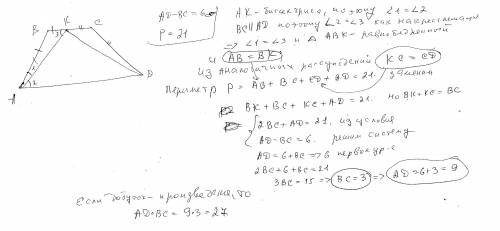 B K C
A D
1 3
2
AD-BC=6
P=21
AK-биссектриса, поэтому ∠1=∠2
BC||AD поэтому ∠2=∠3 как накрест лежащие
⇒ ∠1=∠3 и △ABK-равнобедренный
и AB=BK
из аналогичных рассуждений KC=CD
Периметр P=AB+BC+CD+AD=21. заменим
BK+BC+KC+AD=21. но BK+KC=BC
2BC+AD=21. из условия
AD-BC=6. решим систему
AD=6+BC ⇒ в первое ур-е
2BC+6+BC=21
3BC=15 ⇒ BC=3 ⇒ AD=6+3=9
Если добуток-произведение, то
AD·BC=9·3=27